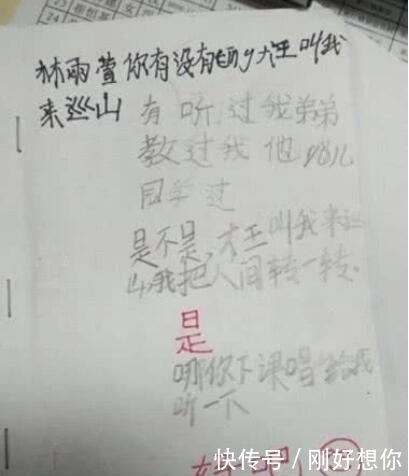 林雨萱你有没有 大王叫我
来巡山
有听过我弟弟
教过我他
同学过
是不是,大王叫我来巡
山,我把人间转一转.
是
哪你下课唱给我
听一下
好吧
快传号/刚好想你